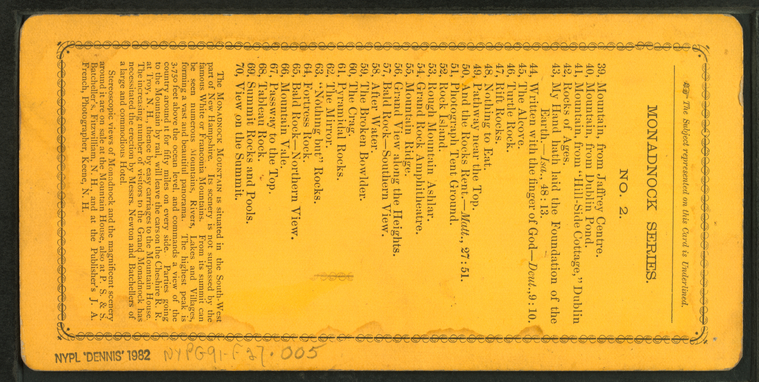 ☞ The Subject represented on this Card is Underlined.
MONADNOCK SERIES.
NO. 2.
39, Mountain, from Jaffrey Centre.
40, Mountain, from Dublin Pond.
41, Mountain, from "Hill-Side Cottage," Dublin
42, Rocks of Ages.
43, My Hand hath laid the Foundation of the
Earth.—Isa., 48 : 13.
44, Written with the finger of God—Deut., 9 : 10.
45, The Alcove.
46, Turtle Rock.
47, Rift Rocks.
48, Nothing to Eat.
49, Pathway near the Top.
50, And the Rocks Rent,—Matt., 27 : 51.
51, Photograph Tent Ground.
52, Rock Island.
53, Rough Mountain Ashlar.
54, Grand Rock Amphitheatre.
55, Mountain Ridge.
56, Grand View along the Heights.
57, Bald Rock—Southern View.
58, After Water.
59, The Broken Bowlder.
60, The Crag.
61, Pyramidal Rocks.
62, The Mirror.
63, "Nothing but" Rocks.
64, Fortress Rock.
65, Bald Rock—Northern View.
66, Mountain Vale.
67, Passway to the Top.
68, Tableau Rock.
69, Summit Rocks and Pools.
70, View on the Summit.
The MONADNOCK MOUNTAIN is situated in the South-West
part of New Hampshire. Its scenery is not surpassed by the
famous White or Franconia Mountains. From its summit can
be seen numerous Mountains, Rivers, Lakes and Villages,
forming a vast and beautiful panorama. The highest peak is
3,750 feet above the ocean level, and commands a view of the
country around it for fifty miles on every side. Parties going
to the Mountain by rail, will leave the cars on the Cheshire R. R.
at Troy, N. H., thence by easy carriages to the Mountain House.
The increasing number of visitors to the Grand Monadnock has
necessitated the erection by Messrs. Newton and Batchellers of
a large and commodious Hotel.
Stereoscopic views of Monadnock and the magnificent scenery
around it are on sale at the Mountain House, also at P. S. & S.
Batcheller's, Fitzwilliam, N. H., and at the Publisher's J. A.
French, Photographer, Keene, N. H.
NYPL 'DENNIS' 1982
NYPG91-F37.005